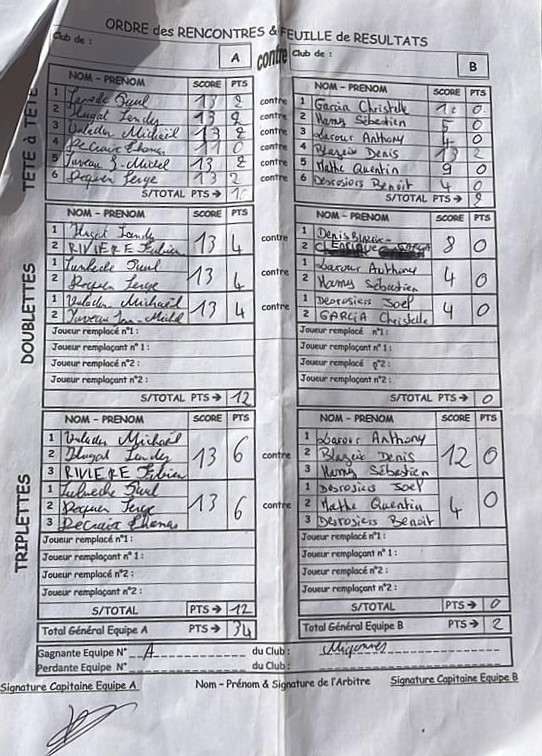 ORDRE des RENCONTRES & FEUILLE de RESULTATS
Club de : A contre Club de : B
TÊTE à TÊTE
NOM - PRENOM SCORE PTS NOM - PRENOM SCORE PTS
1 13 2 contre 1 Garcia Christelle 0
2 Hugat 13 2 contre 2 Hamy Sébastien 5 0
3 Valadin Michaël 13 2 contre 3 Larour Anthony 4 0
4 11 0 contre 4 Blazeix Denis 13 2
5 Juveau J-Michel 13 2 contre 5 Mathe Quentin 9 0
6 Pequer Serge 13 2 contre 6 Desrosiers Benoit 4 0
S/TOTAL PTS → 10 S/TOTAL PTS → 2
DOUBLETTES
NOM - PRENOM SCORE PTS NOM - PRENOM SCORE PTS
1 Hugat 13 4 contre 1 Denis Blazeix 8 0
2 RIVIERE Fabien 2
1 13 4 contre 1 Larour Anthony 4 0
2 Pequer Serge 2 Hamy Sébastien
1 Valadin Michaël 13 4 contre 1 Desrosiers Joel 4 0
2 Juveau 2 GARCIA Christelle
Joueur remplacé n°1 : Joueur remplacé n°1 :
Joueur remplaçant n°1 : Joueur remplaçant n°1 :
Joueur remplacé n°2 : Joueur remplacé n°2 :
Joueur remplaçant n°2 : Joueur remplaçant n°2 :
S/TOTAL PTS → 12 S/TOTAL PTS → 0
TRIPLETTES
NOM - PRENOM SCORE PTS NOM - PRENOM SCORE PTS
1 Valadin Michaël 1 Larour Anthony
2 Hugat 13 6 contre 2 Blazeix Denis 12 0
3 RIVIERE Fabien 3 Hamy Sébastien
1 1 Desrosiers Joel
2 Pequer Serge 13 6 contre 2 Mathe Quentin 4 0
3 3 Desrosiers Benoit
Joueur remplacé n°1 : Joueur remplacé n°1 :
Joueur remplaçant n°1 : Joueur remplaçant n°1 :
Joueur remplacé n°2 : Joueur remplacé n°2 :
Joueur remplaçant n°2 : Joueur remplaçant n°2 :
S/TOTAL PTS → 12 S/TOTAL PTS → 0
Total Général Equipe A PTS → 34 Total Général Equipe B PTS → 2
Gagnante Equipe N° A du Club :
Perdante Equipe N° du Club :
Signature Capitaine Equipe A Nom - Prénom & Signature de l'Arbitre Signature Capitaine Equipe B